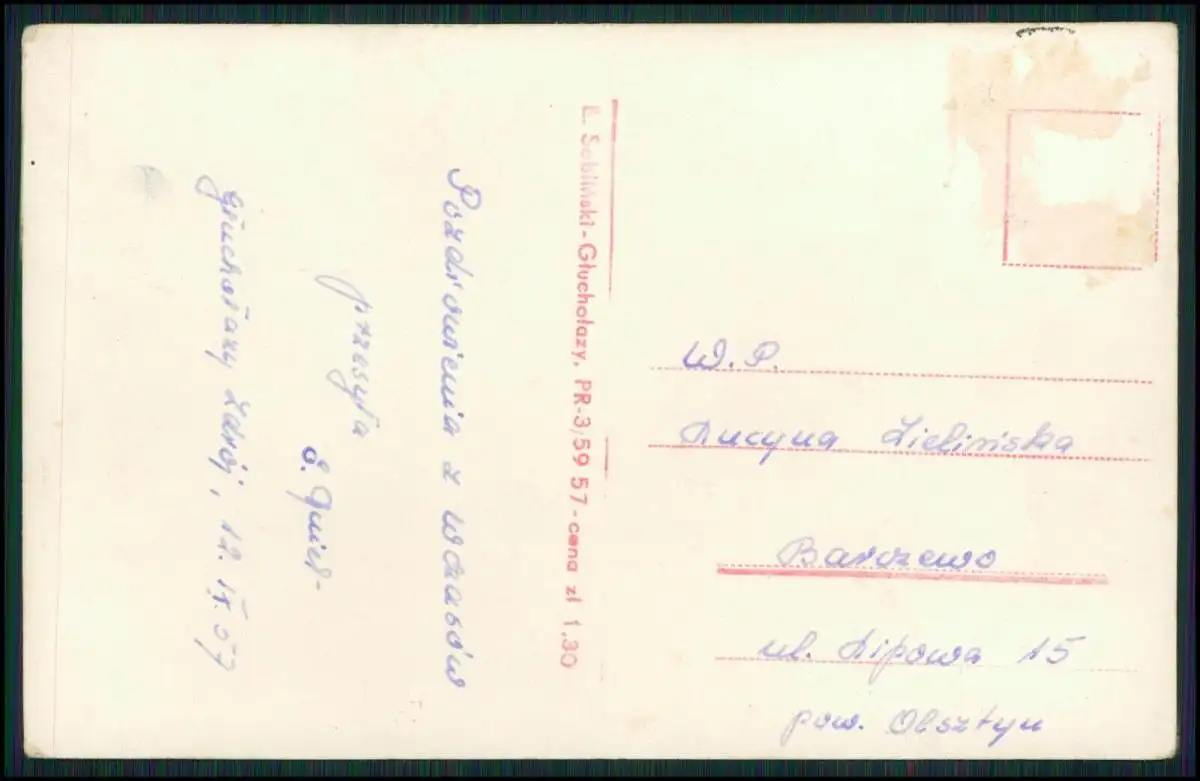 Pozdrowienia z wczasów
przesyła
Głuchołazy Zdrój, 12. IX. 57
E. Sobliński - Głuchołazy, PR-3/59 57 - cena zł 1,30
W. P.
Lucyna Zielińska
Barczewo
ul. Lipowa 15
pow. Olsztyn